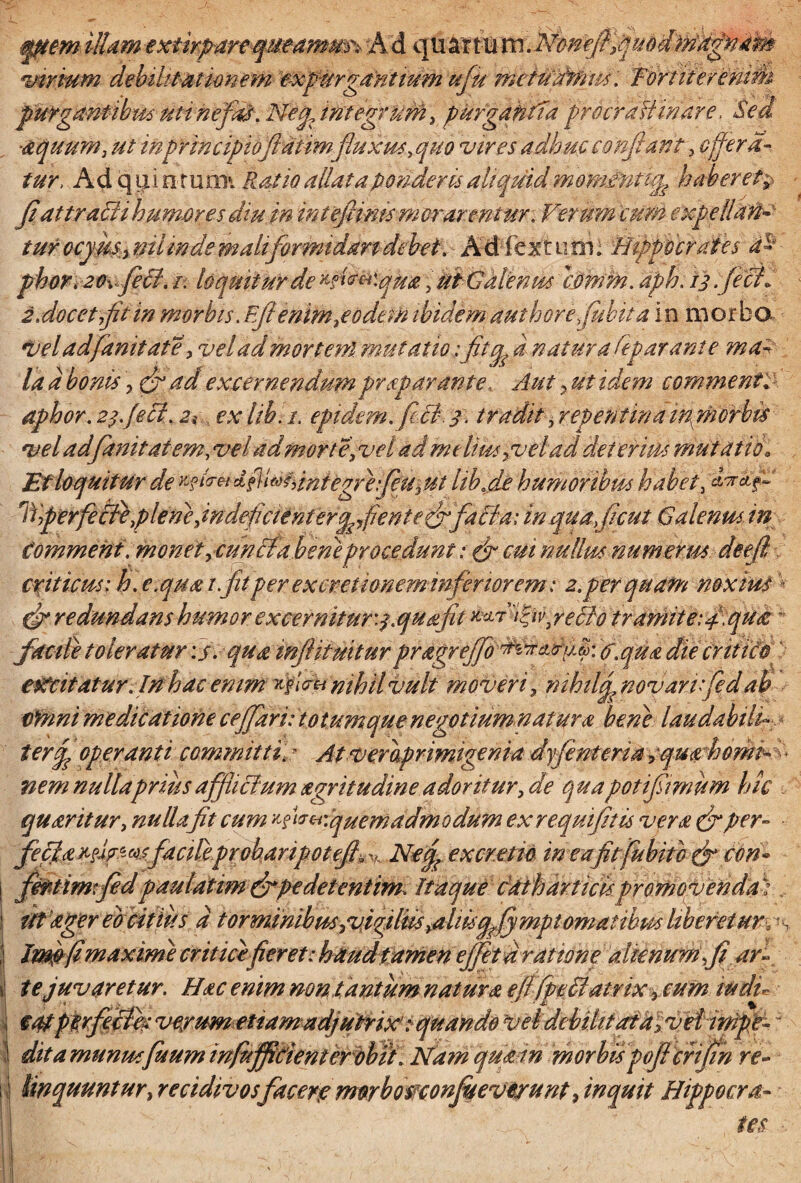 quem illam extirpare queamus. Ad quartum. Non est, quod magnam
virium debilitationem expurgantium usu metuamus. Fortiter enim
purgantibus uti nefas. Neq; integrum, purgantia procrastinare. Sed
æquum, ut in principio statim fluxus, quo vires adhuc constant, offerā-
tur. Ad quintum. Ratio allata ponderis aliquid momentiq; haberet,
si attracti humores diu in intestinis morarentur. Verum cum expellan-
tur ocyus, nil inde mali formidari debet. Ad sextum. Hippocrates a-
phor. 20. sect. 1. loquitur de κρίσει: quæ, ut Galenus comm. aph. 13. sect.
2. docet, fit in morbis. Est enim, eodem ibidem authore, subita in morbo
vel ad sanitatē, vel ad mortem mutatio: fitq; à natura separante ma-
la à bonis, & ad excernendum præparante. Aut, ut idem comment.
aphor. 23. sect. 2. ex lib. 1. epidem. sect. 3. tradit, repentina in morbis
vel ad sanitatem, vel ad mortē, vel ad melius, vel ad deterius mutatio.
Et loquitur de κρίσει integrè: seu, ut lib. de humoribus habet,
perfectè, plenè, indeficienterq;, fiente & facta: in qua, sicut Galenus in
comment. monet, cuncta benè procedunt: & cui nullus numerus deest
criticus: h. e. quæ 1. fit per excretionem inferiorem: 2. per quam noxius
& redundans humor excernitur: 3. quæ fit κατ' ἴξιν, recto tramite: 4. quæ
facilè toleratur: 5. quæ instituitur prægresso πεπασμῷ: 6. quæ die critico
excitatur. In hac enim κρίσει nihil vult moveri, nihilq; novari: sed ab
omni medicatione cessari: totumque negotium naturæ benè laudabili-
terq; operanti committi. At verò primigenia dysenteria, quæ homi-
nem nulla priùs afflictum ægritudine adoritur, de qua potissimùm hîc
quæritur, nulla fit cum κρίσει: quemadmodum ex requisitis veræ & per-
fectæ κρίσεως facilè probari potest. Neq; excretio in ea fit subitò & con-
fertim: sed paulatim & pedetentim. Itaque catharticis promovenda:
ut æger eò citiùs à torminibus, vigiliis, aliisq; symptomatibus liberetur.
Imò si maximè criticè fieret: haud tamen esset à ratione alienum, si ar-
te juvaretur. Hæc enim non tantùm naturæ est spectatrix, cum iudi-
cat perfectè: verum etiam adjutrix: quando vel debilitata, vel impe-
dita munus suum insufficienter obit. Nam quæ in morbis post crisin re-
linquuntur, recidivos facere morbos consueverunt, inquit Hippocra-
tes